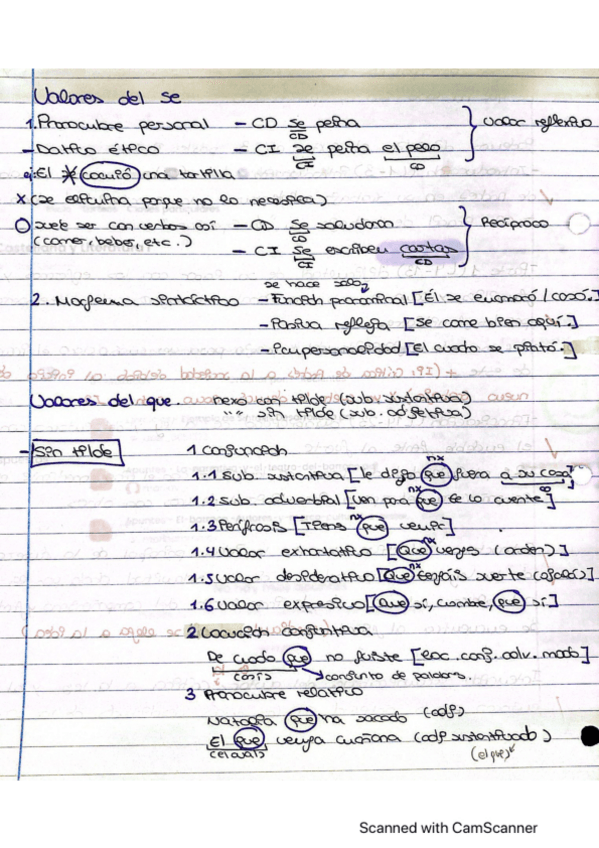 Valores del se
1. Pronombre personal - CD se peina } Valor reflexivo
CD
- Dativo ético - CI se peina el pelo
CI CD
ej: El se comió una tortilla
x (se elimina porque no lo necesita)
suele ser con verbos así - CD Se saludaron } Recíproco
CD
(comer, beber, etc.) - CI Se escriben cartas
CI CD
se hace solo
2. Morfema sintáctico - Función pronominal [Él se enamoró / cosó.]
- Pasiva refleja [Se come bien aquí.]
- Impersonalidad [El cuadro se pintó.]
Valores del que nexo con tilde (sub. sustantiva)
"" sin tilde (sub. adjetiva)
- Sin tilde 1 Conjunción
nx
1.1 Sub. sustantiva [le digo que fuera a su casa]
nx CD
1.2 Sub. adverbial [Ven pra que te lo cuente]
nx
1.3 Perífrasis [Tiens que venir]
nx
1.4 Valor exhortativo [Que vengas (orden)]
nx
1.5 Valor desiderativo [Que tengáis suerte (ojalá)]
1.6 Valor expresivo [Que sí, hombre, que sí]
2 Locución conjuntiva
De modo que no fuiste [loc. conj. adv. modo]
conjunto de palabras.
3 Pronombre relativo
Natalia que ha sacado (adj)
El que venga mañana (adj sustantivado)
(el cual) (el que)
Scanned with CamScanner